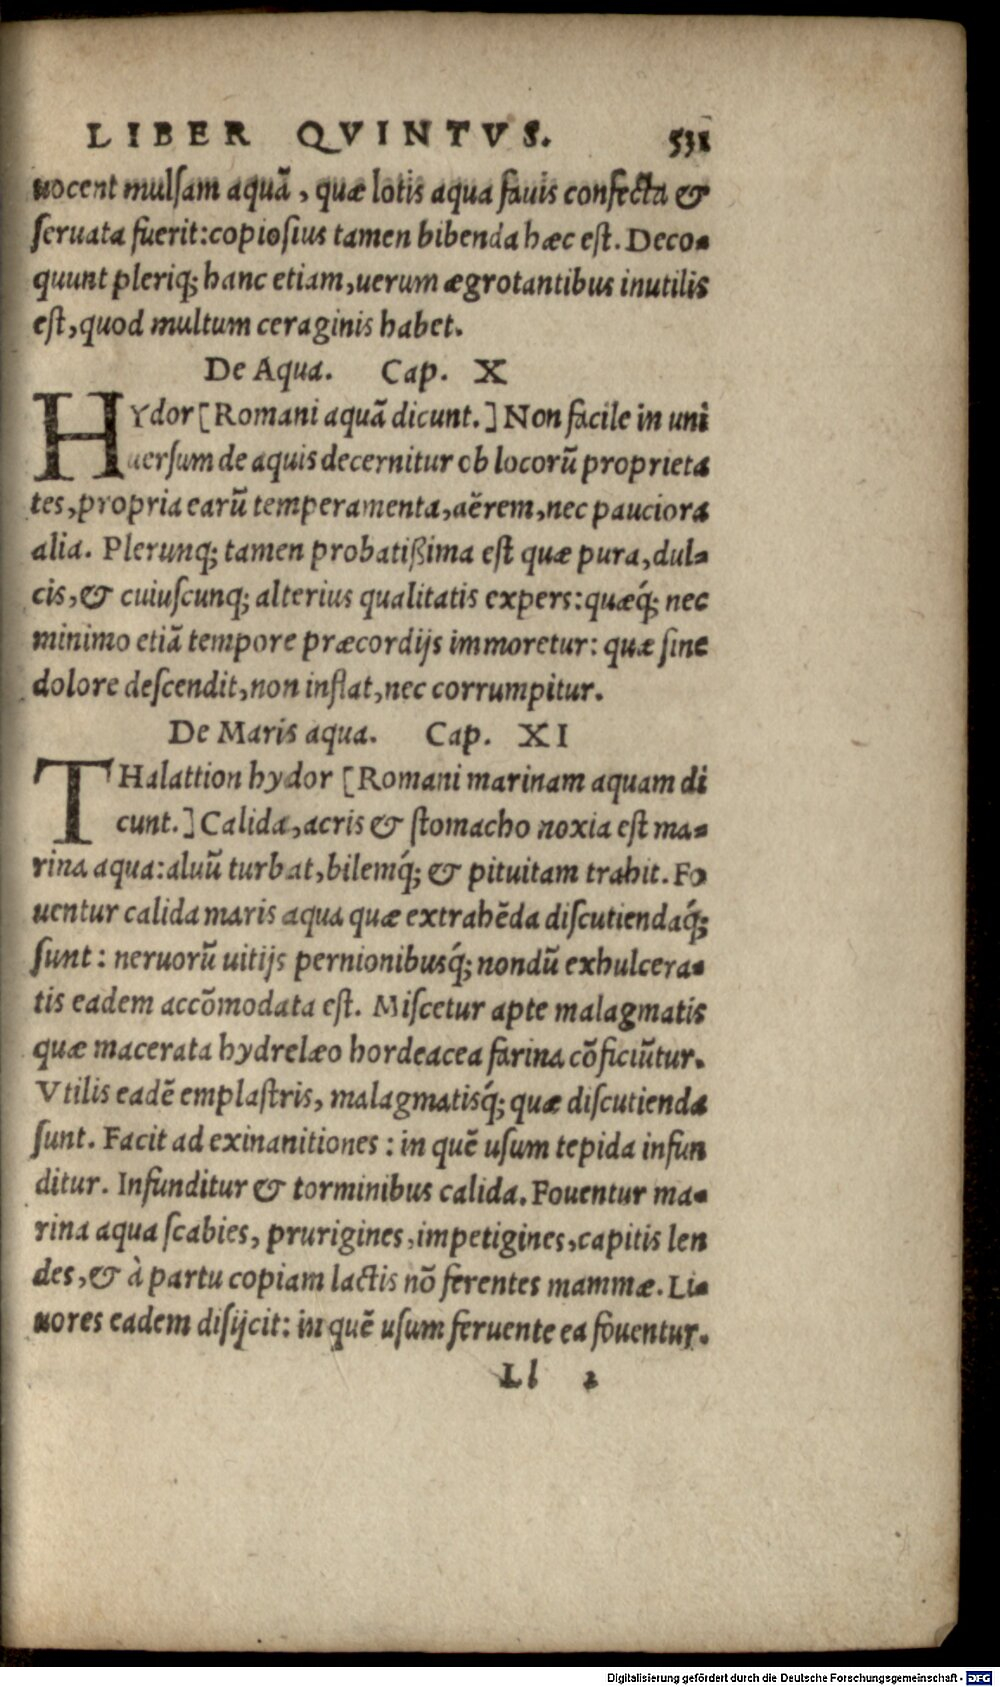 LIBER QVINTVS. 531
uocent mulſam aquā, quæ lotis aqua fauis confecta &
ſeruata fuerit: copioſius tamen bibenda hæc eſt. Deco-
quunt pleriq; hanc etiam, uerum ægrotantibus inutilis
eſt, quod multum ceraginis habet.
De Aqua. Cap. X
HYdor [Romani aquā dicunt.] Non facile in uni
uerſum de aquis decernitur ob locorū proprieta
tes, propria earū temperamenta, aërem, nec pauciora
alia. Plerunq; tamen probatißima eſt quæ pura, dul-
cis, & cuiuſcunq; alterius qualitatis expers: quæq́; nec
minimo etiā tempore præcordijs immoretur: quæ ſine
dolore deſcendit, non inflat, nec corrumpitur.
De Maris aqua. Cap. XI
THalattion hydor [Romani marinam aquam di
cunt.] Calida, acris & ſtomacho noxia eſt ma-
rina aqua: aluū turbat, bilemq́; & pituitam trahit. Fo
uentur calida maris aqua quæ extrahēda diſcutiendaq́;
ſunt: neruorū uitijs pernionibusq́; nondū exhulcera-
tis eadem accōmodata eſt. Miſcetur apte malagmatis
quæ macerata hydrelæo hordeacea farina cōficiūtur.
Vtilis eadē emplaſtris, malagmatisq́; quæ diſcutienda
ſunt. Facit ad exinanitiones: in quē uſum tepida infun
ditur. Infunditur & torminibus calida. Fouentur ma-
rina aqua ſcabies, prurigines, impetigines, capitis len
des, & à partu copiam lactis nō ferentes mammæ. Li-
uores eadem diſijcit: in quē uſum feruente ea fouentur.
Ll 2
Digitalisierung gefördert durch die Deutsche Forschungsgemeinschaft - DFG